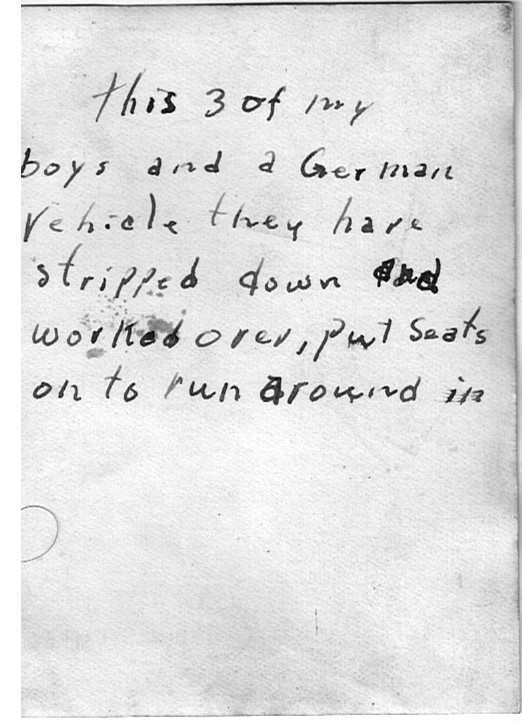 this 3 of my
boys and a German
Vehicle they have
stripped down and
worked over, put Seats
on to run around in